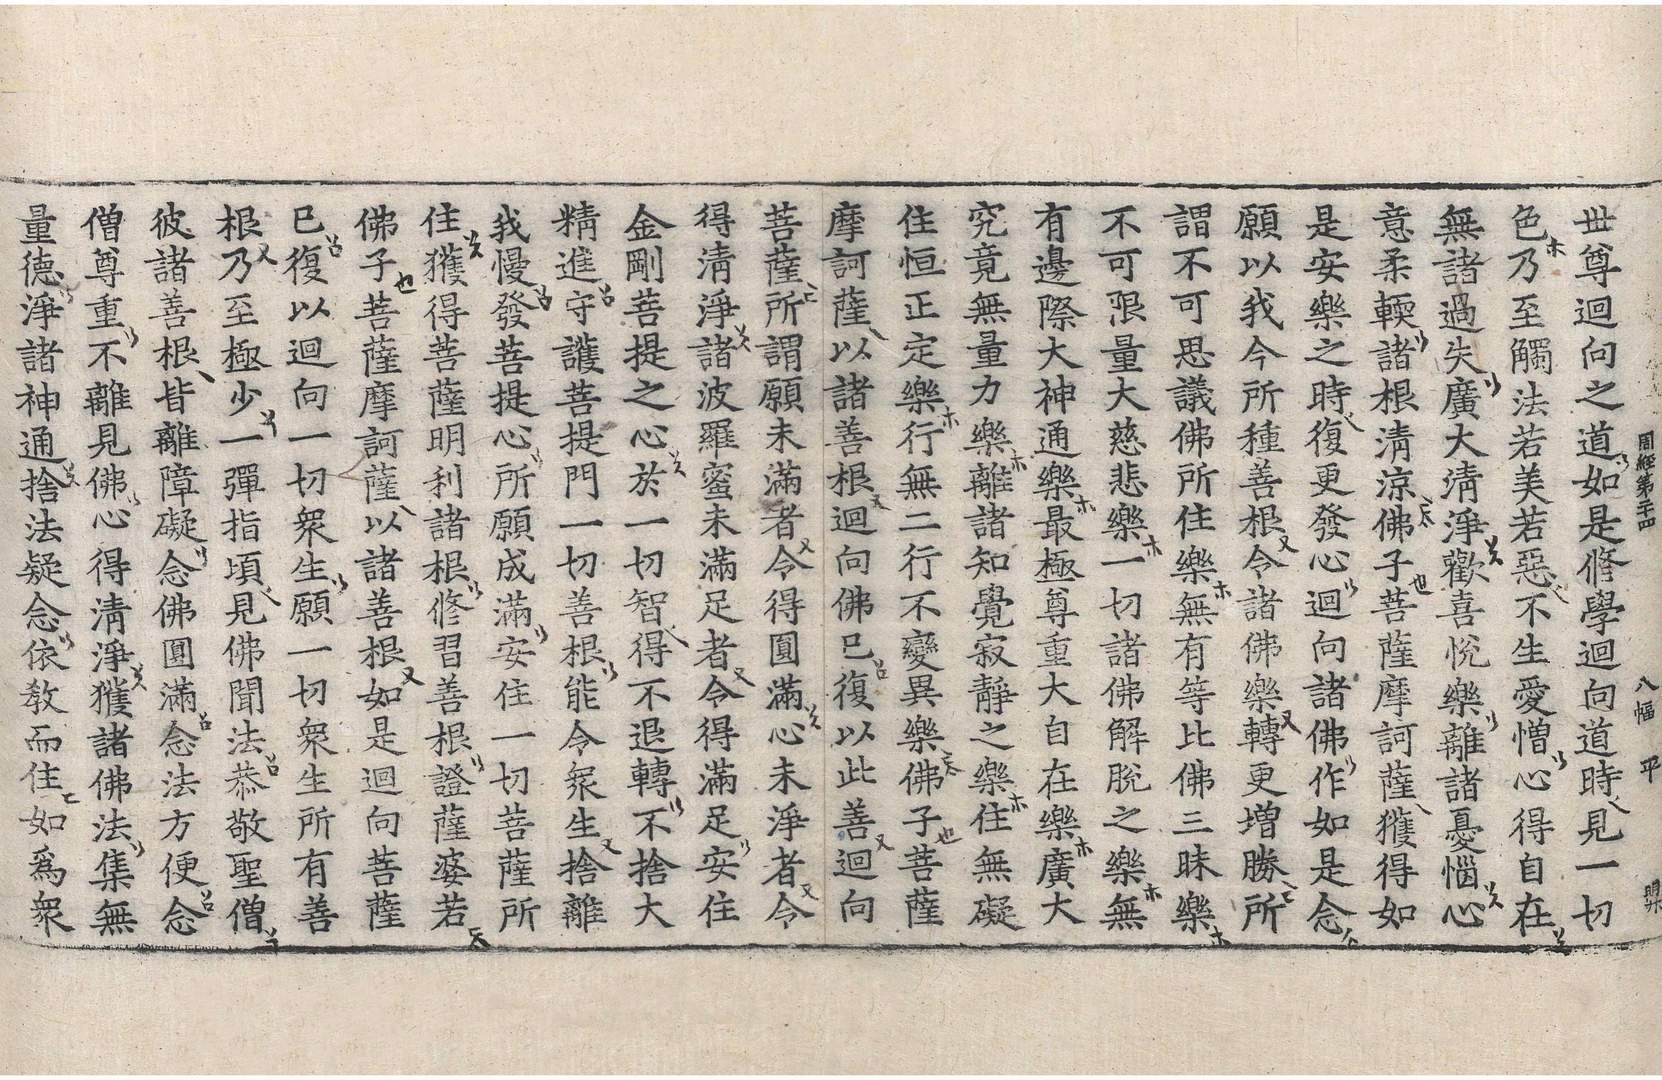 周經第二十四 八幅 平 㫤
世尊迴向之道如是修學迴向道時見一切
色乃至觸法若美若惡不生愛憎心得自在
無諸過失廣大清淨歡喜悅樂離諸憂惱心
意柔輭諸根清涼佛子菩薩摩訶薩獲得如
是安樂之時復更發心迴向諸佛作如是念
願以我今所種善根令諸佛樂轉更增勝所
謂不可思議佛所住樂無有等比佛三昧樂
不可限量大慈悲樂一切諸佛解脫之樂無
有邊際大神通樂最極尊重大自在樂廣大
究竟無量力樂離諸知覺寂靜之樂住無礙
住恒正定樂行無二行不變異樂佛子菩薩
摩訶薩以諸善根迴向佛已復以此善迴向
菩薩所謂願未滿者令得圓滿心未淨者令
得清淨諸波羅蜜未滿足者令得滿足安住
金剛菩提之心於一切智得不退轉不捨大
精進守護菩提門一切善根能令衆生捨離
我慢發菩提心所願成滿安住一切菩薩所
住獲得菩薩明利諸根修習善根證薩婆若
佛子菩薩摩訶薩以諸善根如是迴向菩薩
已復以迴向一切衆生願一切衆生所有善
根乃至極少一彈指頃見佛聞法恭敬聖僧
彼諸善根皆離障礙念佛圓滿念法方便念
僧尊重不離見佛心得清淨獲諸佛法集無
量德淨諸神通捨法疑念依教而住如爲衆